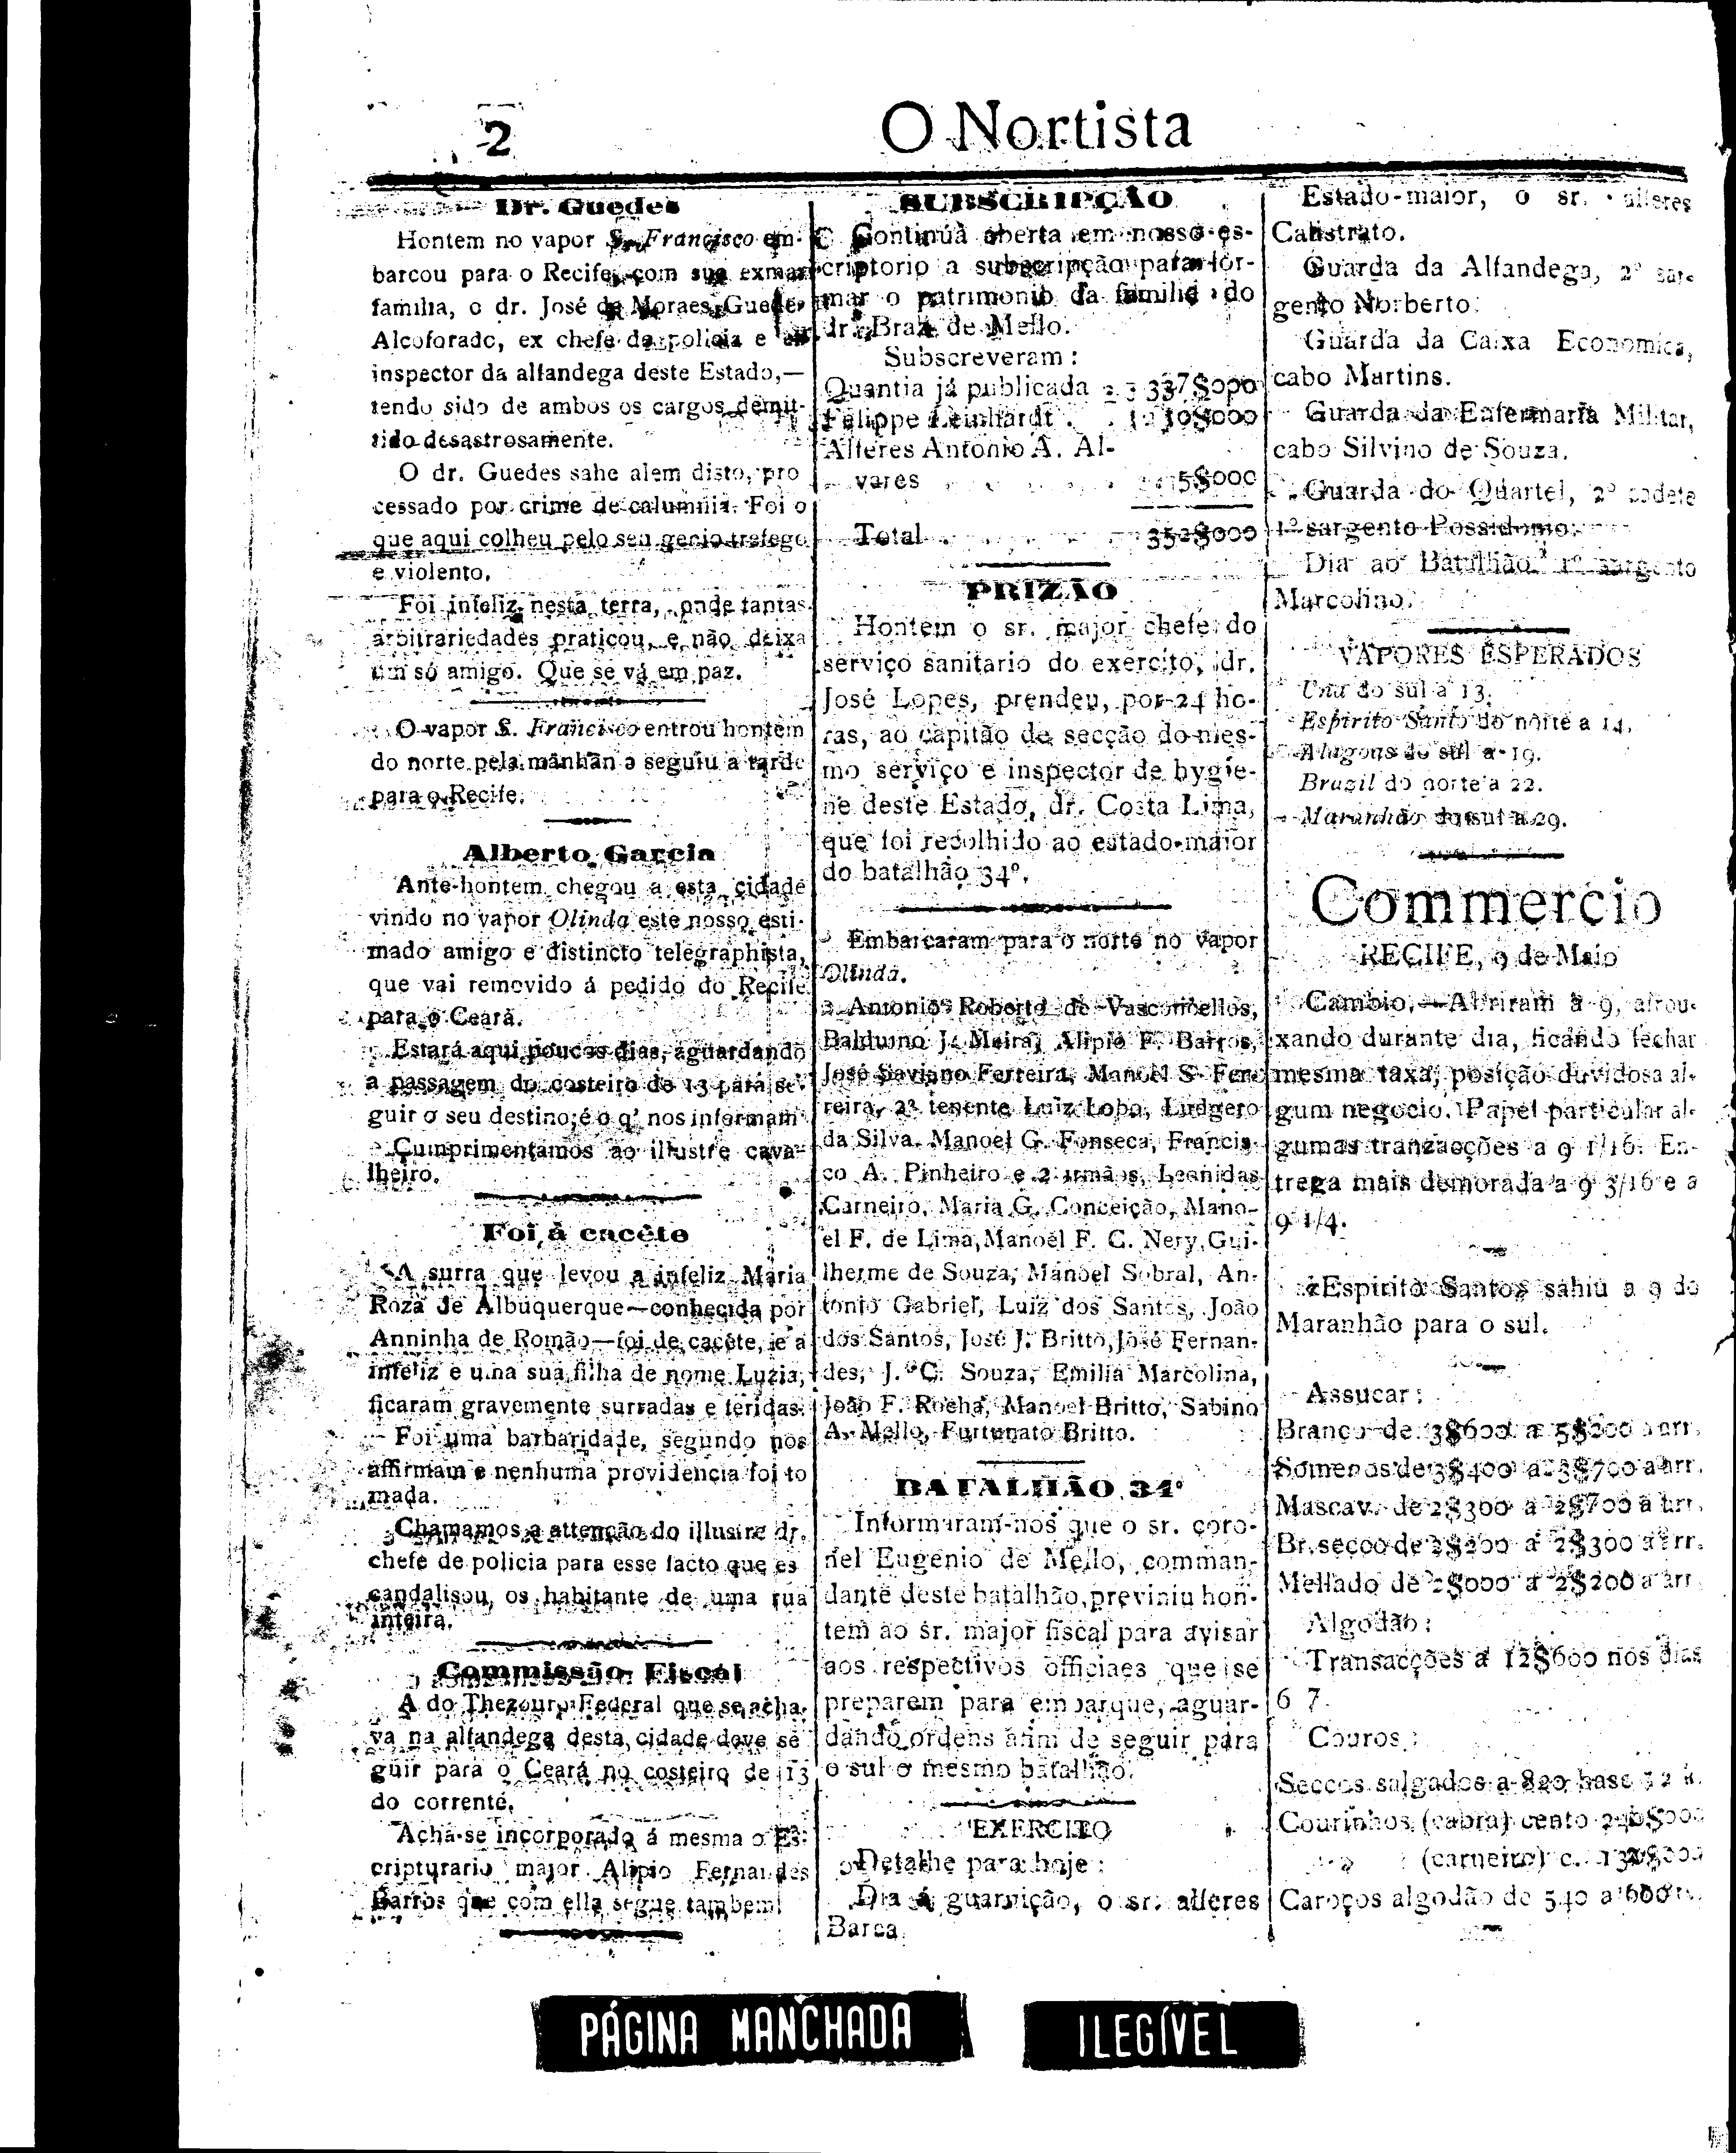 2
O Nortista
Dr. Guedes
Hontem no vapor S. Francisco em-
barcou para o Recife, com sua exma
familia, o dr. José de Moraes Guedes
Alcoforado, ex chefe de policia e ex
inspector da alfandega deste Estado,—
tendo sido de ambos os cargos demit-
tido desastrosamente.
O dr. Guedes sahe alem disto, pro
cessado por crime de calumnia. Foi o
que aqui colheu pelo seu genio trefego
e violento.
Foi infeliz nesta terra, onde tantas
arbitrariedades praticou, e não deixa
um só amigo. Que se vá em paz.
O vapor S. Francisco entrou hontem
do norte pela manhan e seguiu a tarde
para o Recife.
Alberto Garcia
Ante-hontem chegou a esta cidade
vindo no vapor Olinda este nosso esti-
mado amigo e distincto telegraphista,
que vai removido á pedido do Recife
para o Ceará.
Estará aqui poucos dias, aguardando
a passagem do costeiro de 13 para se-
guir o seu destino, é o q' nos informam
Cumprimentamos ao illustre cava-
lheiro.
Foi á cacête
A surra que levou a infeliz Maria
Roza de Albuquerque—conhecida por
Anninha de Romão—foi de cacête, e a
infeliz e uma sua filha de nome Luzia,
ficaram gravemente surradas e feridas.
Foi uma barbaridade, segundo nos
affirmam e nenhuma providencia foi to
mada.
Chamamos a attenção do illustre dr.
chefe de policia para esse facto que es
candalisou os habitante de uma rua
inteira.
Commissão Fiscal
A do Thezouro Federal que se acha-
va na alfandega desta cidade deve se
guir para o Ceará no costeiro de 13
do corrente.
Acha-se incorporado á mesma o Es-
cripturario major Alipio Fernandes
Barros que com ella segue tambem.
SUBSCRIPÇÃO
Continúa aberta em nosso es-
criptorio a subscripção para for-
mar o patrimonio da familia do
dr. Braz de Mello.
Subscreveram:
Quantia já publicada 337$000
Felippe Leinhardt . 10$000
Alferes Antonio A. Al-
vares 5$000
Total 352$000
PRIZÃO
Hontem o sr. major chefe do
serviço sanitario do exercito, dr.
José Lopes, prendeu, por 24 ho-
ras, ao capitão de secção do mes-
mo serviço e inspector de hygie-
ne deste Estado, dr. Costa Lima,
que foi recolhido ao estado-maior
do batalhão 34º.
Embarcaram para o norte no vapor
Olinda.
Antonio Roberto de Vasconcellos,
Balduino J. Meira, Alipio F. Barros,
José Saviano Ferreira, Manoel S. Fer-
reira, 2º tenente Luiz Lobo, Ludgero
da Silva, Manoel G. Fonseca, Francis-
co A. Pinheiro e 2 irmãos, Leonidas
Carneiro, Maria G. Conceição, Mano-
el F. de Lima, Manoel F. C. Nery, Gui-
lherme de Souza, Manoel Sobral, An-
tonio Gabriel, Luiz dos Santos, João
dos Santos, José J. Britto, José Fernan-
des, J. C. Souza, Emilia Marcolina,
João F. Rocha, Manoel Britto, Sabino
A. Mello, Furtunato Britto.
BATALHÃO 34º
Informaram-nos que o sr. coro-
nel Eugenio de Mello, comman-
dante deste batalhão, previniu hon-
tem ao sr. major fiscal para avisar
aos respectivos officiaes que se
preparem para embarque, aguar-
dando ordens afim de seguir para
o sul o mesmo batalhão.
EXERCITO
Detalhe para hoje:
Dia á guarnição, o sr. alferes
Barca.
Estado-maior, o sr. alferes
Calistrato.
Guarda da Alfandega, 2º sar-
gento Norberto.
Guarda da Caixa Economica,
cabo Martins.
Guarda da Enfermaria Militar,
cabo Silvino de Souza.
Guarda do Quartel, 2º cadete
1º sargento Possidonio.
Dia ao Batalhão, 1º sargento
Marcolino.
VAPORES ESPERADOS
Una do sul a 13.
Espirito Santo do norte a 14.
Alagoas do sul a 19.
Brazil do norte a 22.
Maranhão do sul a 29.
Commercio
RECIFE, 9 de Maio
Cambio.—Abriram a 9, afrou-
xando durante dia, ficando fechar
mesma taxa, posição duvidosa al-
gum negocio. Papel particular al-
gumas tranzacções a 9 1/16. En-
trega mais demorada a 9 3/16 e a
9 1/4.
Espirito Santo sahiu a 9 do
Maranhão para o sul.
Assucar:
Branco de 3$600 a 5$200 a arr.
Somenos de 3$400 a 3$700 a arr.
Mascav. de 2$300 a 2$700 a arr.
Br. secco de 2$200 a 2$300 a arr.
Mellado de 2$000 a 2$200 a arr.
Algodão:
Transacções a 12$600 nos dias
6 7.
Couros:
Seccos salgados a 820 base 12 k.
Courinhos (cabra) cento
(carneiro) c.
Caroços algodão de 540 a 600 rs.
PÁGINA MANCHADA
ILEGÍVEL